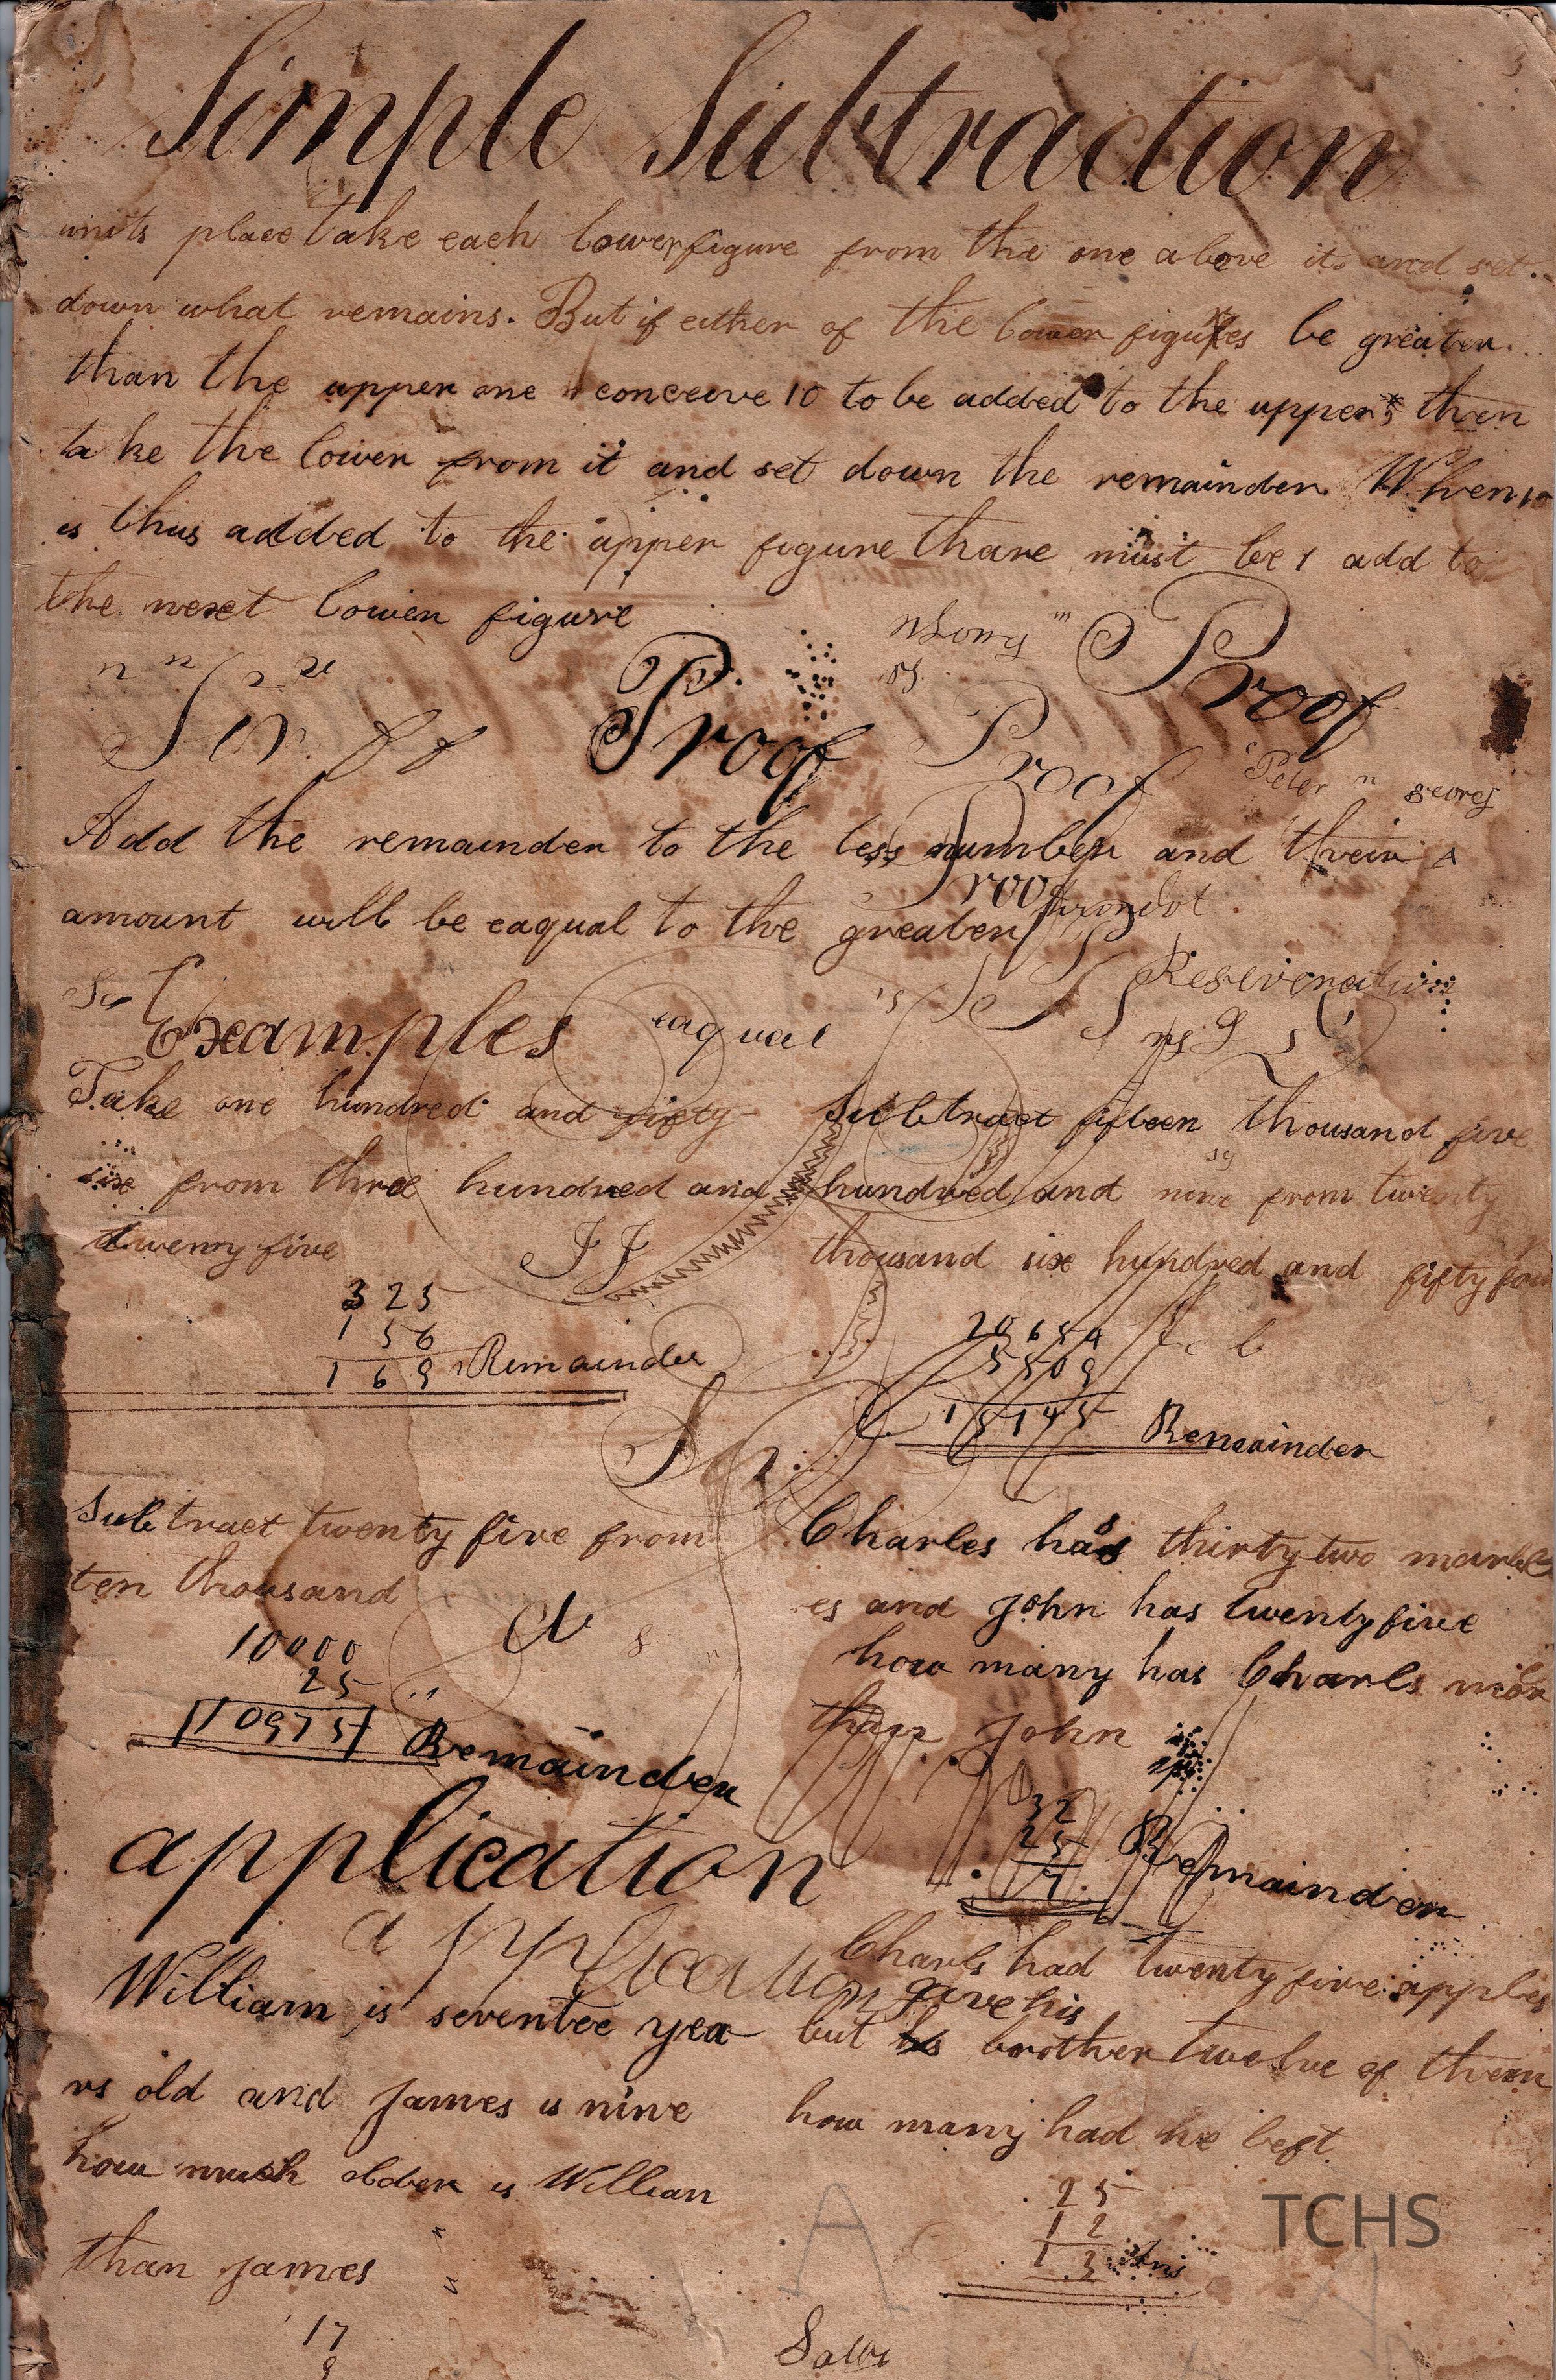 Simple Subtraction
units place take each lower figure from the one above it and set
down what remains. But if either of the lower figures be greater
than the upper one conceive 10 to be added to the upper; then
take the lower from it and set down the remainder. When 10
is thus added to the upper figure thare must be 1 add to
the nexet lower figure
Proof
Proof
Proof
Peter
Add the remainder to the less number and their
amount will be eaqual to the greater
Proof
Examples
eaqual
Take one hundred and fifty
six from three hundred and
twenty five
325
156
169 Remainder
Subtract fifteen thousand five
hundred and nine from twenty
thousand six hundred and fifty four
20654
5509
15145 Remainder
Subtract twenty five from
ten thousand
10000
25
10975 Remainder
Charles has thirty two marbl
es and John has twenty five
how many has Charls mor
than John
32
25
7 Remainder
application
application
William is seventee yea
rs old and James is nine
how much older is William
than James
17
9
Charls had twenty five apples
gave his
but brother twelve of them
how many had he left
25
12
13 Ans
TCHS